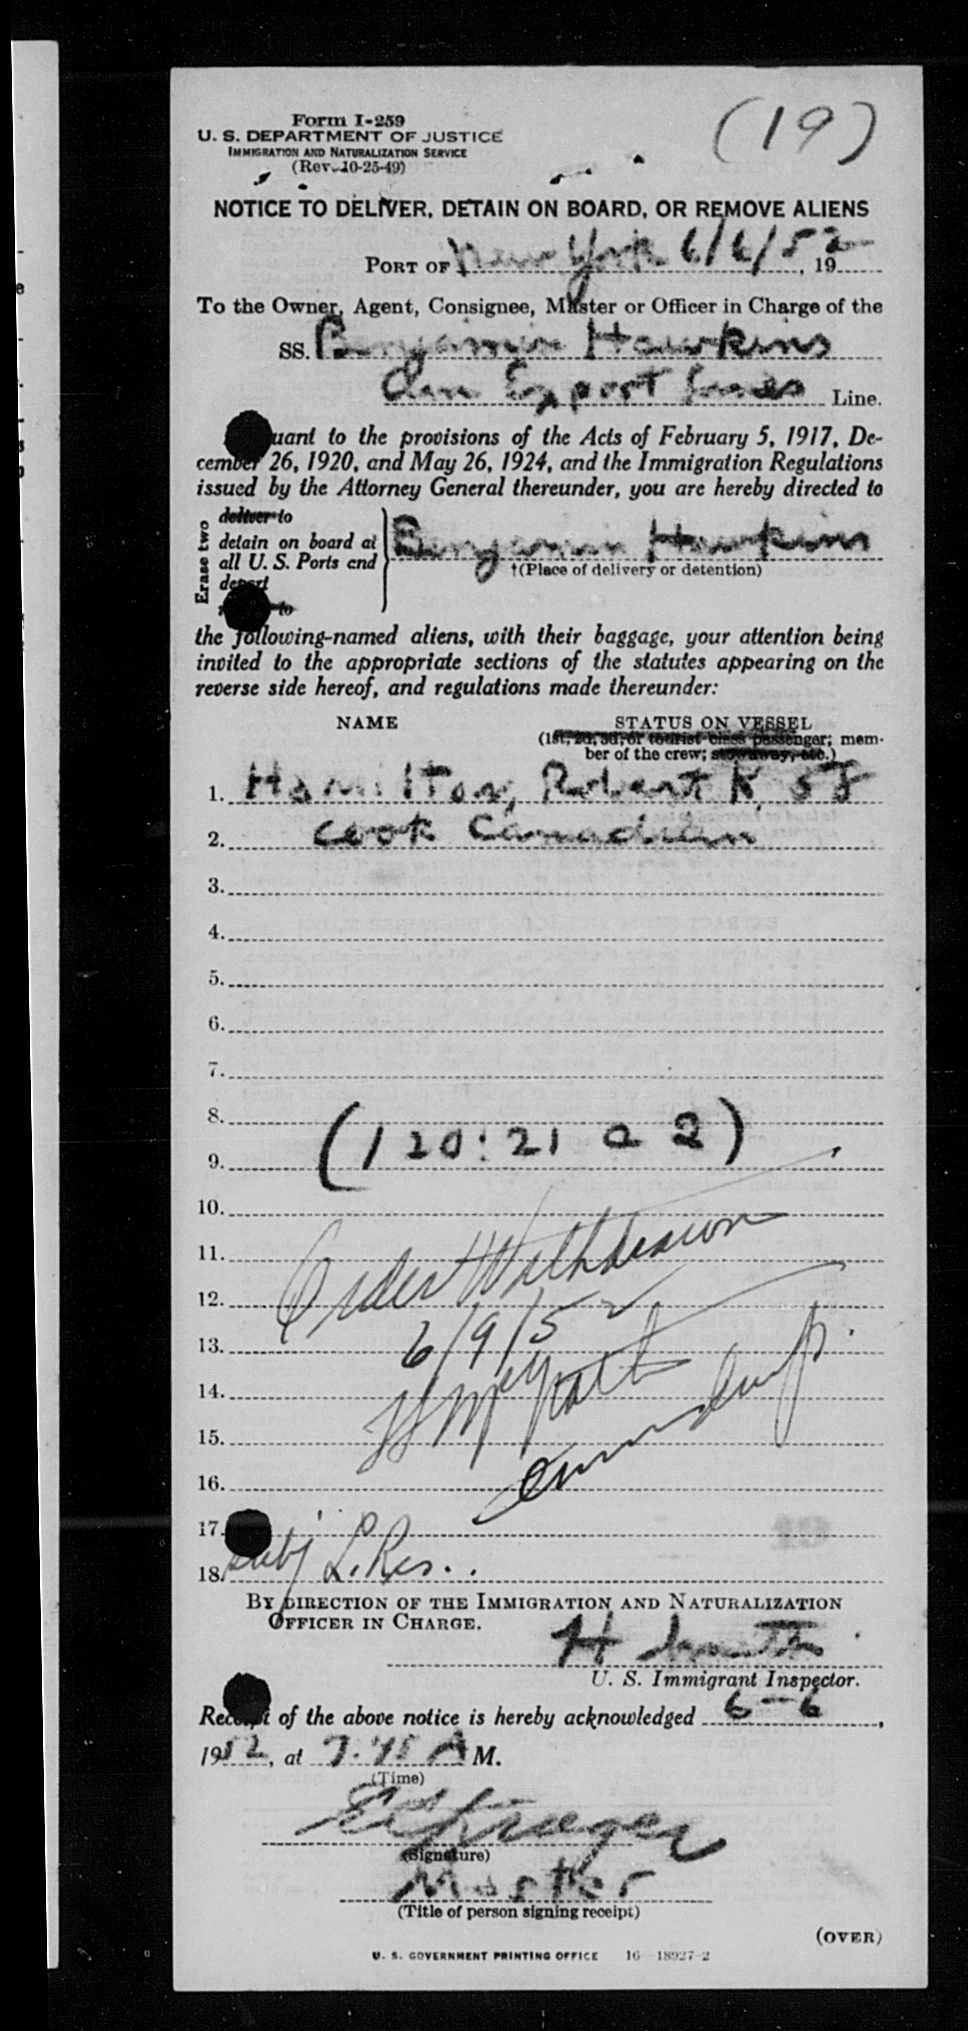 (19)
Form I-259
U. S. DEPARTMENT OF JUSTICE
IMMIGRATION AND NATURALIZATION SERVICE
(Rev. 10-25-49)
NOTICE TO DELIVER, DETAIN ON BOARD, OR REMOVE ALIENS
PORT OF New York 6/6/52, 19
To the Owner, Agent, Consignee, Master or Officer in Charge of the
SS. Benjamin Hawkins
Am Export Lines Line.
uant to the provisions of the Acts of February 5, 1917, De-
cember 26, 1920, and May 26, 1924, and the Immigration Regulations
issued by the Attorney General thereunder, you are hereby directed to
Erase two
deliver to
detain on board at
all U. S. Ports and
depart
to
Benjamin Hawkins
†(Place of delivery or detention)
the following-named aliens, with their baggage, your attention being
invited to the appropriate sections of the statutes appearing on the
reverse side hereof, and regulations made thereunder:
NAME
STATUS ON VESSEL
(1st, 2d, 3d, or tourist class passenger; mem-
ber of the crew; stowaway, etc.)
1. Hamilton, Robert K. 58
2. cook Canadian
3.
4.
5.
6.
7.
8.
(120:21 a 2)
9.
10.
11. Order Withdrawn
12.
13. 6/9/52
14.
15.
16.
17.
18. Subj L. Res.
BY DIRECTION OF THE IMMIGRATION AND NATURALIZATION
OFFICER IN CHARGE.
H Smith
U. S. Immigrant Inspector.
Receipt of the above notice is hereby acknowledged 6-6,
1952, at 7.45 A M.
(Time)
Krueger
(Signature)
Master
(Title of person signing receipt)
(OVER)
U. S. GOVERNMENT PRINTING OFFICE 16—18927-2